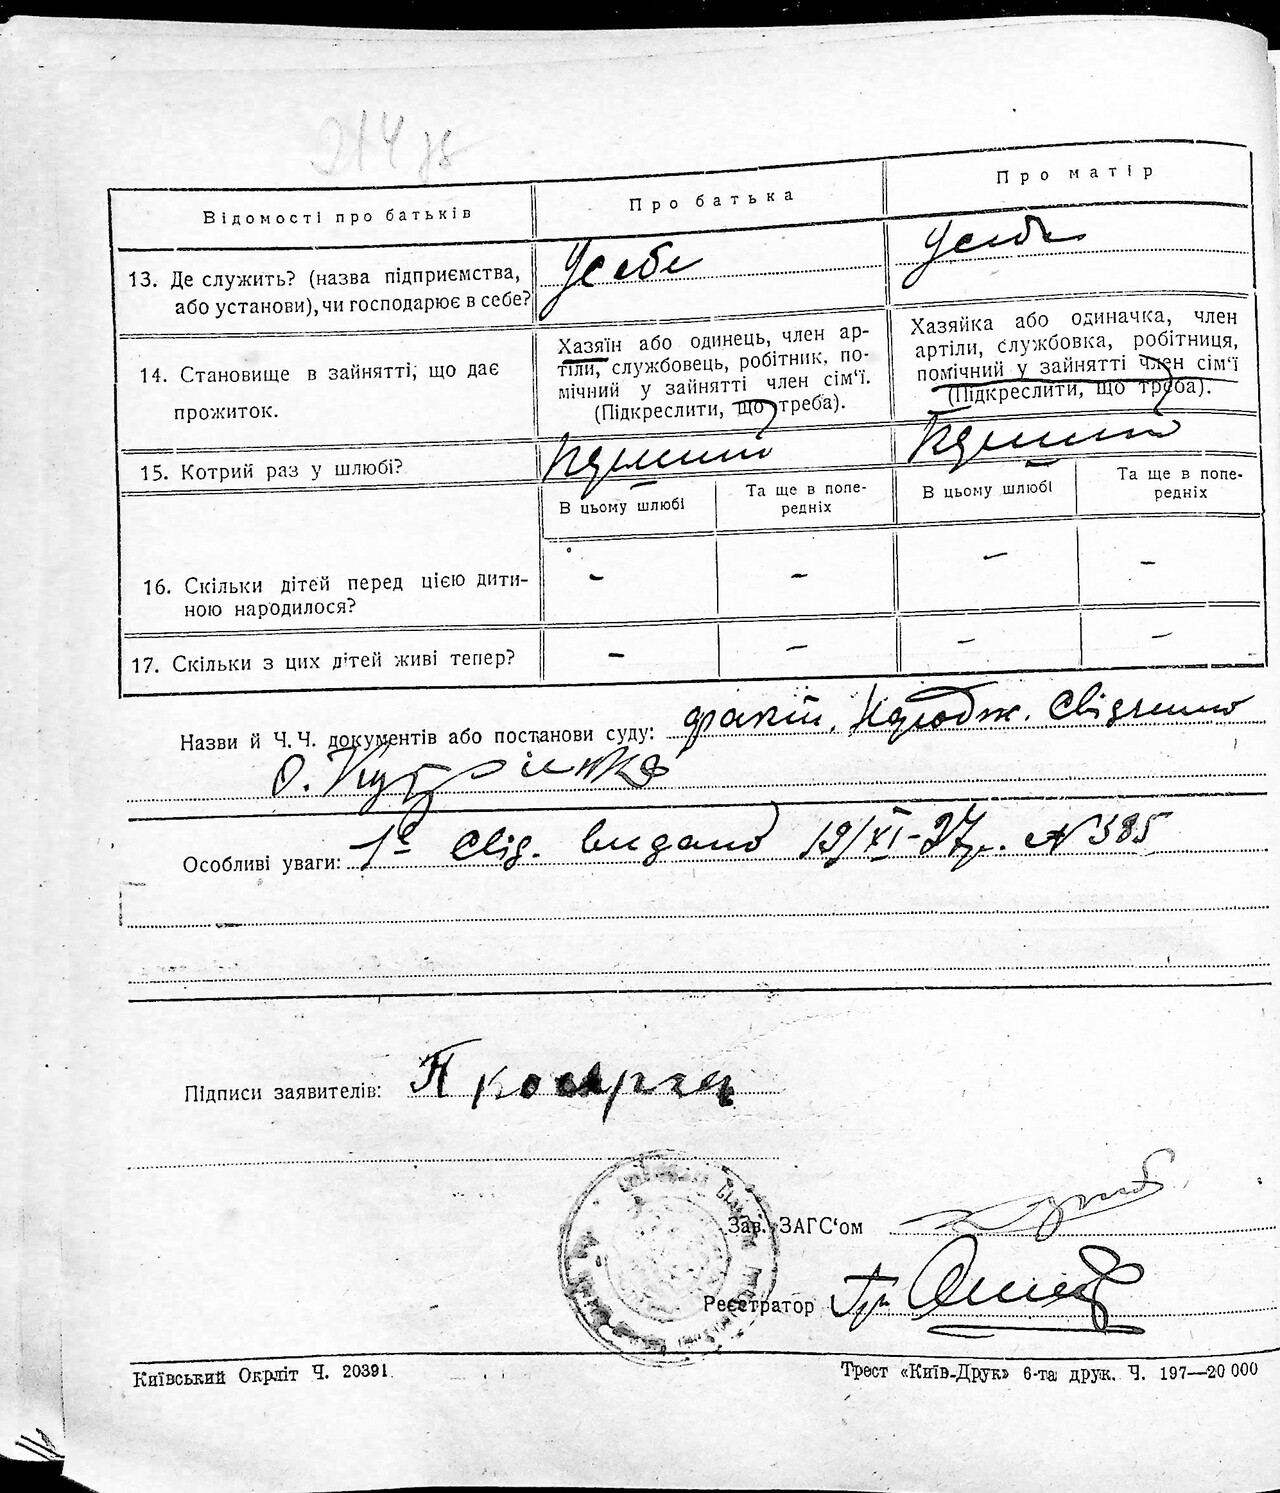 214 зв
Відомості про батьків
Про батька
Про матір
13. Де служить? (назва підприємства, або установи), чи господарює в себе?
У себе
У себе
14. Становище в зайнятті, що дає прожиток.
Хазяїн або одинець, член ар-
тіли, службовець, робітник, по-
мічний у зайнятті член сім'ї.
(Підкреслити, що треба).
Хазяйка або одиначка, член
артіли, службовка, робітниця,
помічний у зайнятті член сім'ї
(Підкреслити, що треба).
15. Котрий раз у шлюбі?
В цьому шлюбі
Та ще в попе-
редніх
В цьому шлюбі
Та ще в попе-
редніх
16. Скільки дітей перед цією дити-
ною народилося?
– – – –
17. Скільки з цих дітей живі тепер?
– – – –
Назви й Ч. Ч. документів або постанови суду:
Особливі уваги: 1е свід. видано 19/XI-27р. №385
Підписи заявителів: П косярга
Зав. ЗАГС'ом
Реєстратор
Київський Окрліт Ч. 20391.
Трест «Київ-Друк» 6-та друк. Ч. 197—20 000